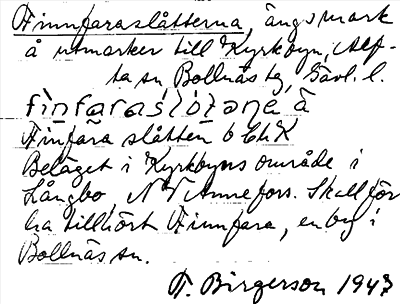 Finnfaraslåtterna, ängsmark
å utmarker till Kyrkbyn, Alf-
ta sn Bollnäs tg, Gävl. l.
finfaraslòtəɳe å
Finfara slåtten 6 Ch K
Beläget i Kyrkbyns område i
Långbo, NV Annefors. Skall för
ha tillhört Finnfara, en by i
Bollnäs sn.
T. Birgerson 1947